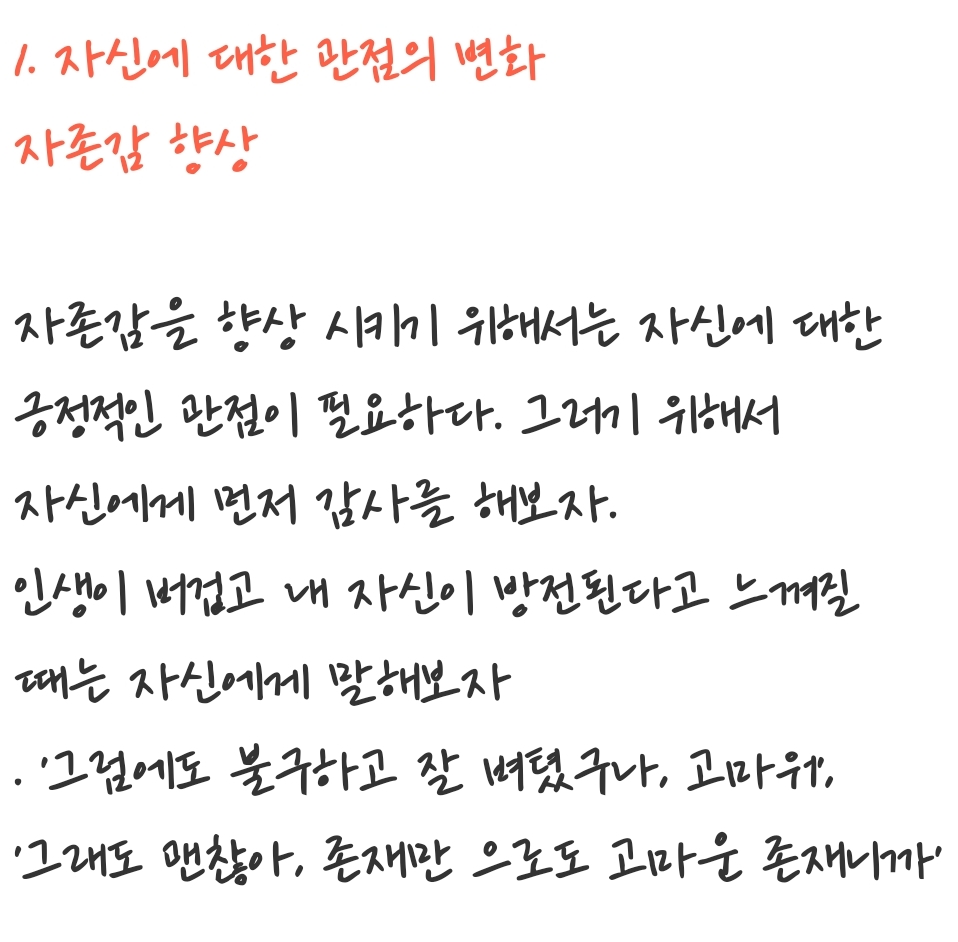 1. 자신에 대한 관점의 변화
자존감 향상
자존감을 향상 시키기 위해서는 자신에 대한
긍정적인 관점이 필요하다. 그러기 위해서
자신에게 먼저 감사를 해보자.
인생이 버겁고 내 자신이 방전된다고 느껴질
때는 자신에게 말해보자
. '그럼에도 불구하고 잘 버텼구나, 고마워',
'그래도 괜찮아, 존재만 으로도 고마운 존재니까'